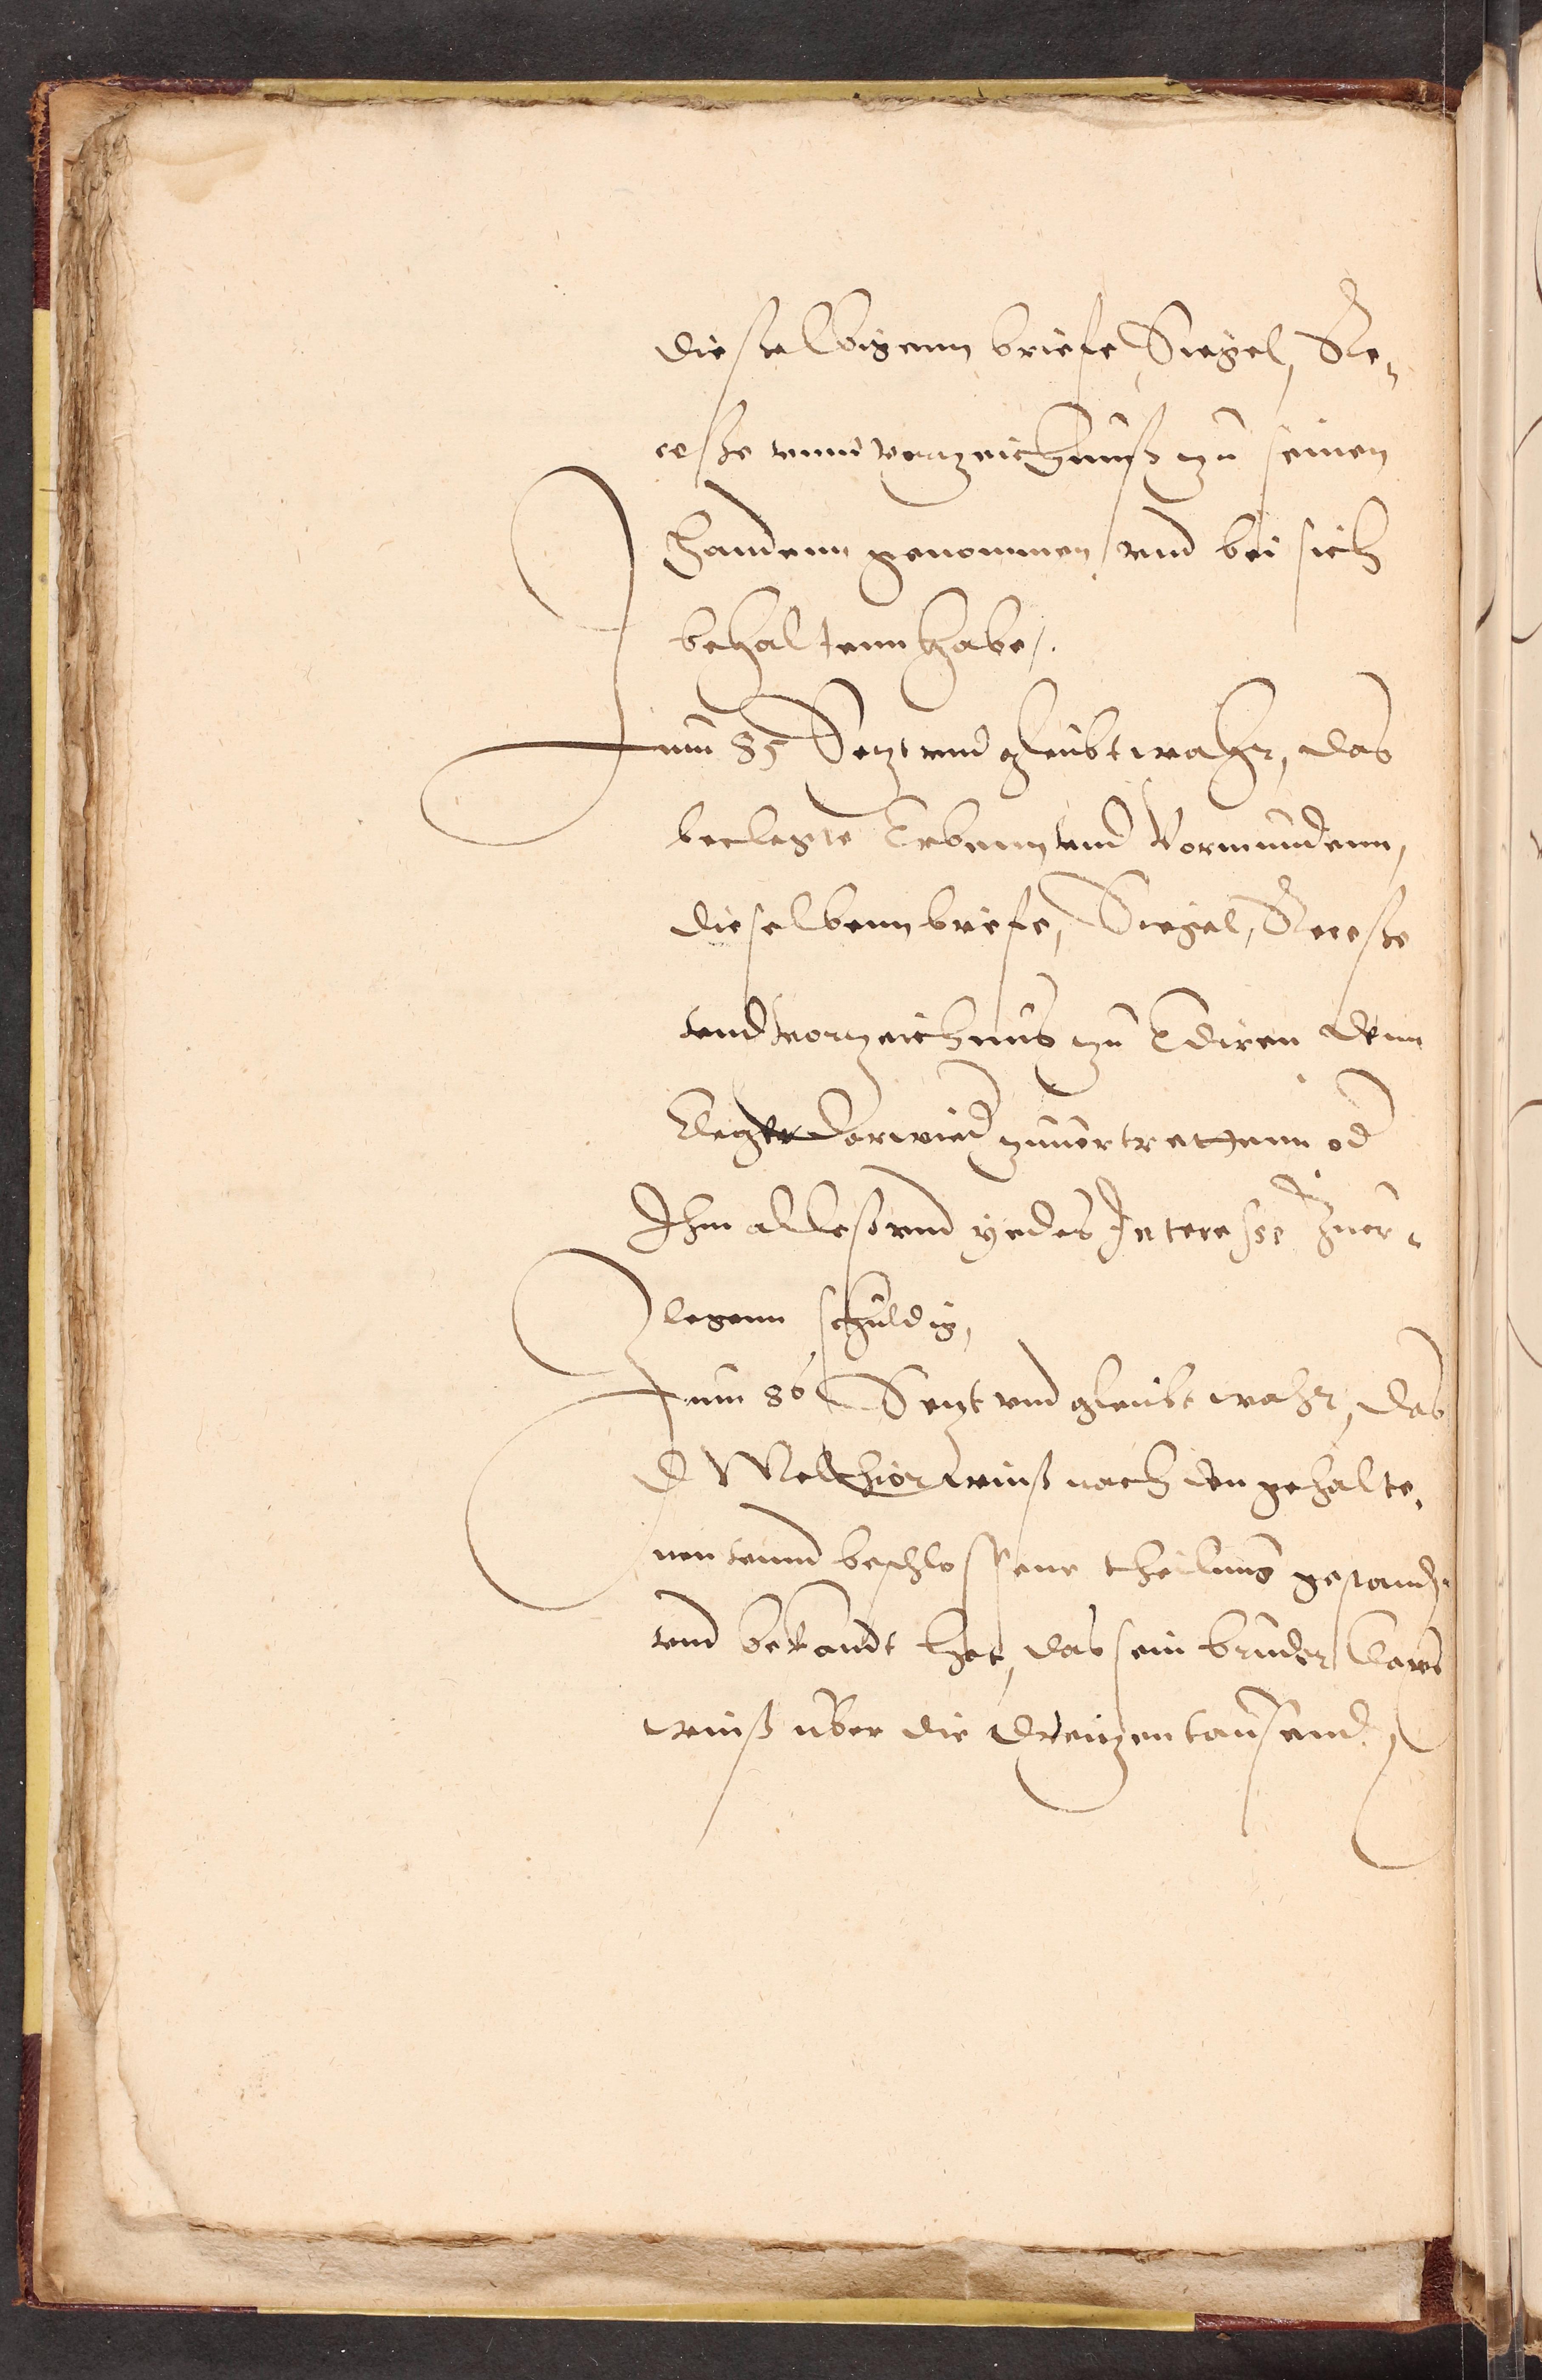 dieselbigenn briefe, Siegel, Re¬
cesse vnnd vorzeichnuß zu seinen
Handenn genommen, vnd bei sich
behaltenn habe,.
Zum 85 Setzt vnd gleubt wahr, das
beclagte Erbenn vnd Vormundenn,
dieselbenn briefe, Siegel, Recesse
vnd vorzeichnus zu Ediren denn
Cleger dorwied zuuertrettenn od
Ihm alles vnd yedes Interesse Zuer¬
legenn schuldig,
Zum 86 Setzt vnd gleubt wahr, das
D Melchior winß nach den gehalte¬
nen vnnd beschlossene theilung gestand¬
vnd bekandt hat, das sein bruder Claws
winß uber die dreizentausend,